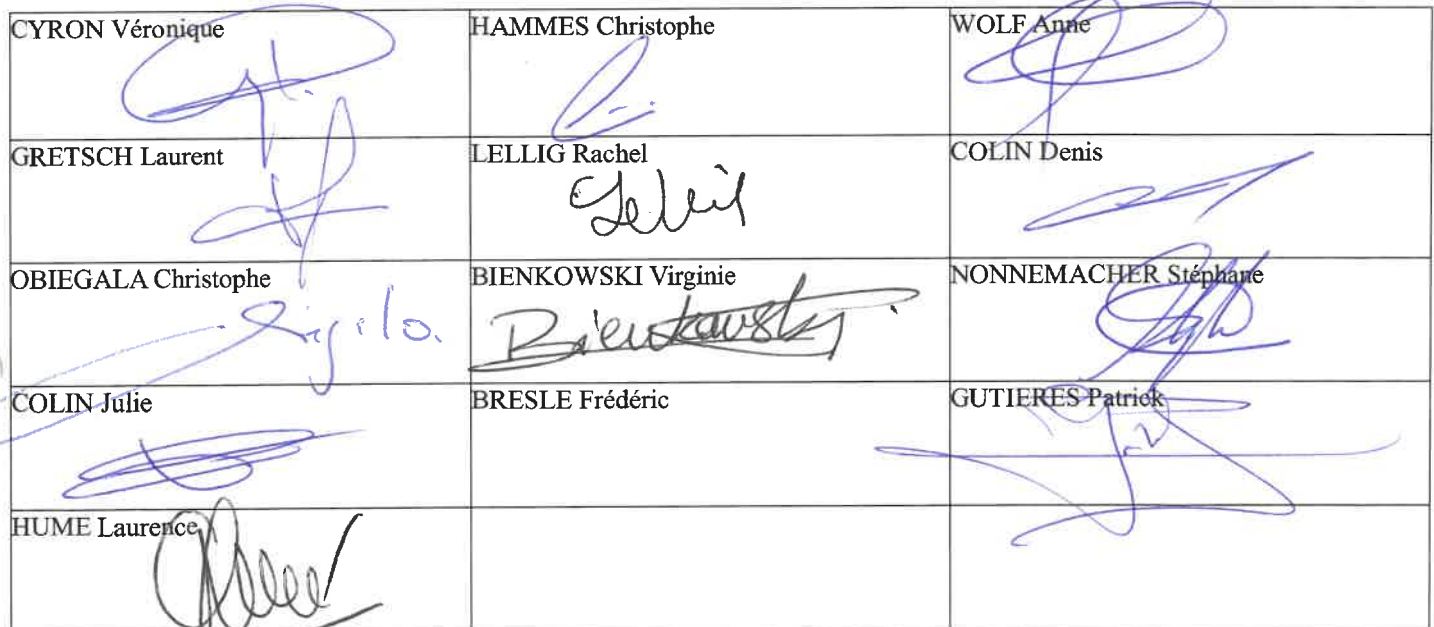 CYRON Véronique
HAMMES Christophe
WOLF Anne
GRETSCH Laurent
LELLIG Rachel
COLIN Denis
OBIEGALA Christophe
BIENKOWSKI Virginie
NONNEMACHER Stéphane
Bienkowski
COLIN Julie
BRESLE Frédéric
GUTIERES Patrick
HUME Laurence